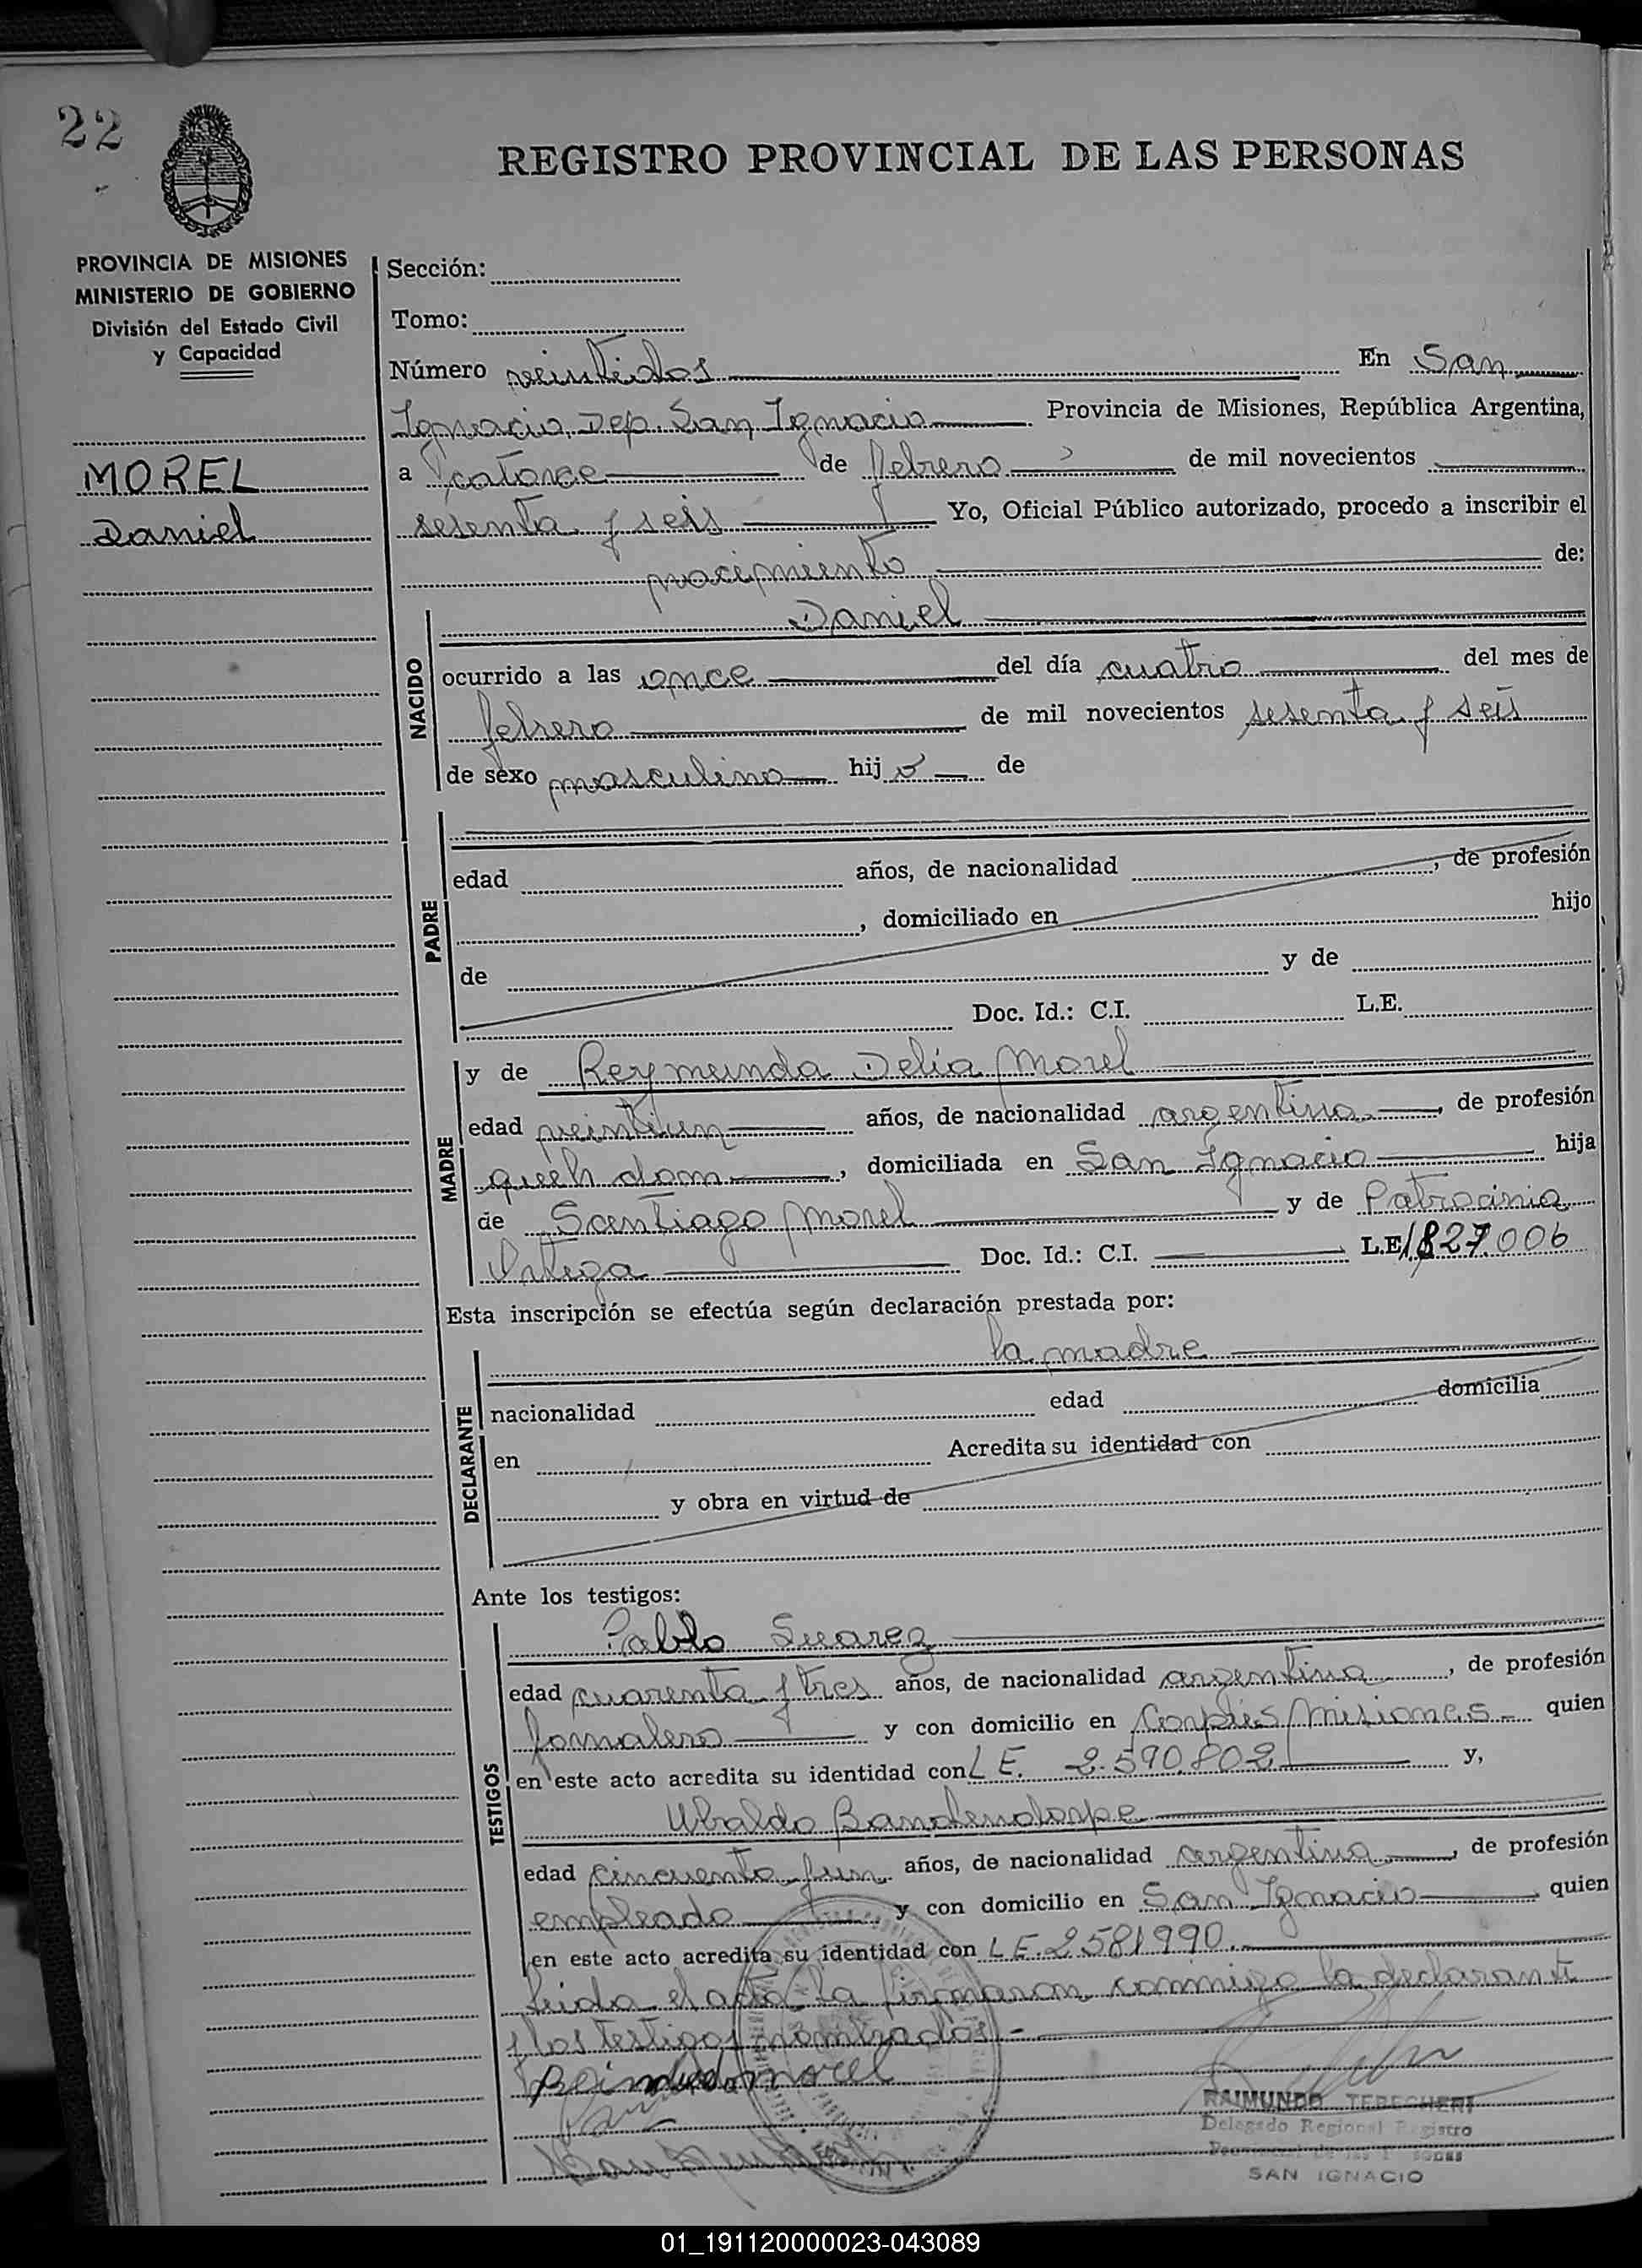 22
REGISTRO PROVINCIAL DE LAS PERSONAS
PROVINCIA DE MISIONES
MINISTERIO DE GOBIERNO
División del Estado Civil
y Capacidad
MOREL
Daniel
Sección:
Tomo:
Número veintidos En San
Ignacio, Dep. San Ignacio Provincia de Misiones, República Argentina,
a catorce de febrero de mil novecientos
sesenta y seis Yo, Oficial Público autorizado, procedo a inscribir el
nacimiento de:
NACIDO
Daniel
ocurrido a las once del día cuatro del mes de
febrero de mil novecientos sesenta y seis
de sexo masculino hijo de
PADRE
edad años, de nacionalidad , de profesión
, domiciliado en hijo
de y de
Doc. Id.: C.I. L.E.
MADRE
y de Reymunda Delia Morel
edad veintiun años, de nacionalidad argentina, de profesión
queh dom , domiciliada en San Ignacio hija
de Santiago Morel y de Patrocinia
Ortega Doc. Id.: C.I. L.E. 1.827.006
Esta inscripción se efectúa según declaración prestada por:
DECLARANTE
la madre
nacionalidad edad domicilia
en Acredita su identidad con
y obra en virtud de
Ante los testigos:
TESTIGOS
Pablo Suarez
edad cuarenta y tres años, de nacionalidad argentina, de profesión
jornalero y con domicilio en Corpus Misiones quien
en este acto acredita su identidad con L E. 2.590.802 y,
Ubaldo
edad cincuenta y un años, de nacionalidad argentina, de profesión
empleado y con domicilio en San Ignacio quien
en este acto acredita su identidad con L E. 2581990.
leida el acta la firmaron conmigo la declarante
y los testigos nombrados.-
morel
RAIMUNDO
Delegado Regional Registro
SAN IGNACIO
01_191120000023-043089